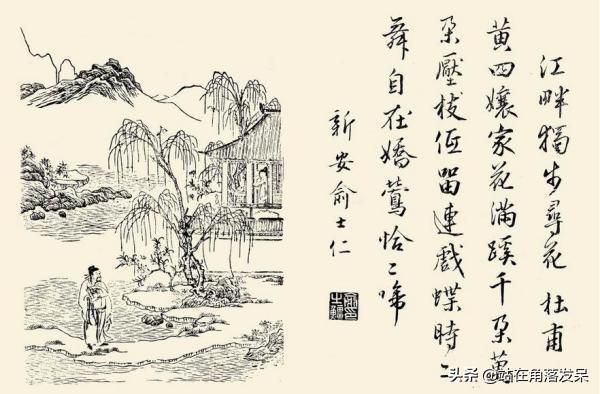 江畔獨步尋花 杜甫
黄四孃家花滿蹊千朶萬
朶壓枝低畱連戲蝶時〻
舞自在嬌鶯恰〻啼
新安俞士仁
头条 @站在角落发呆